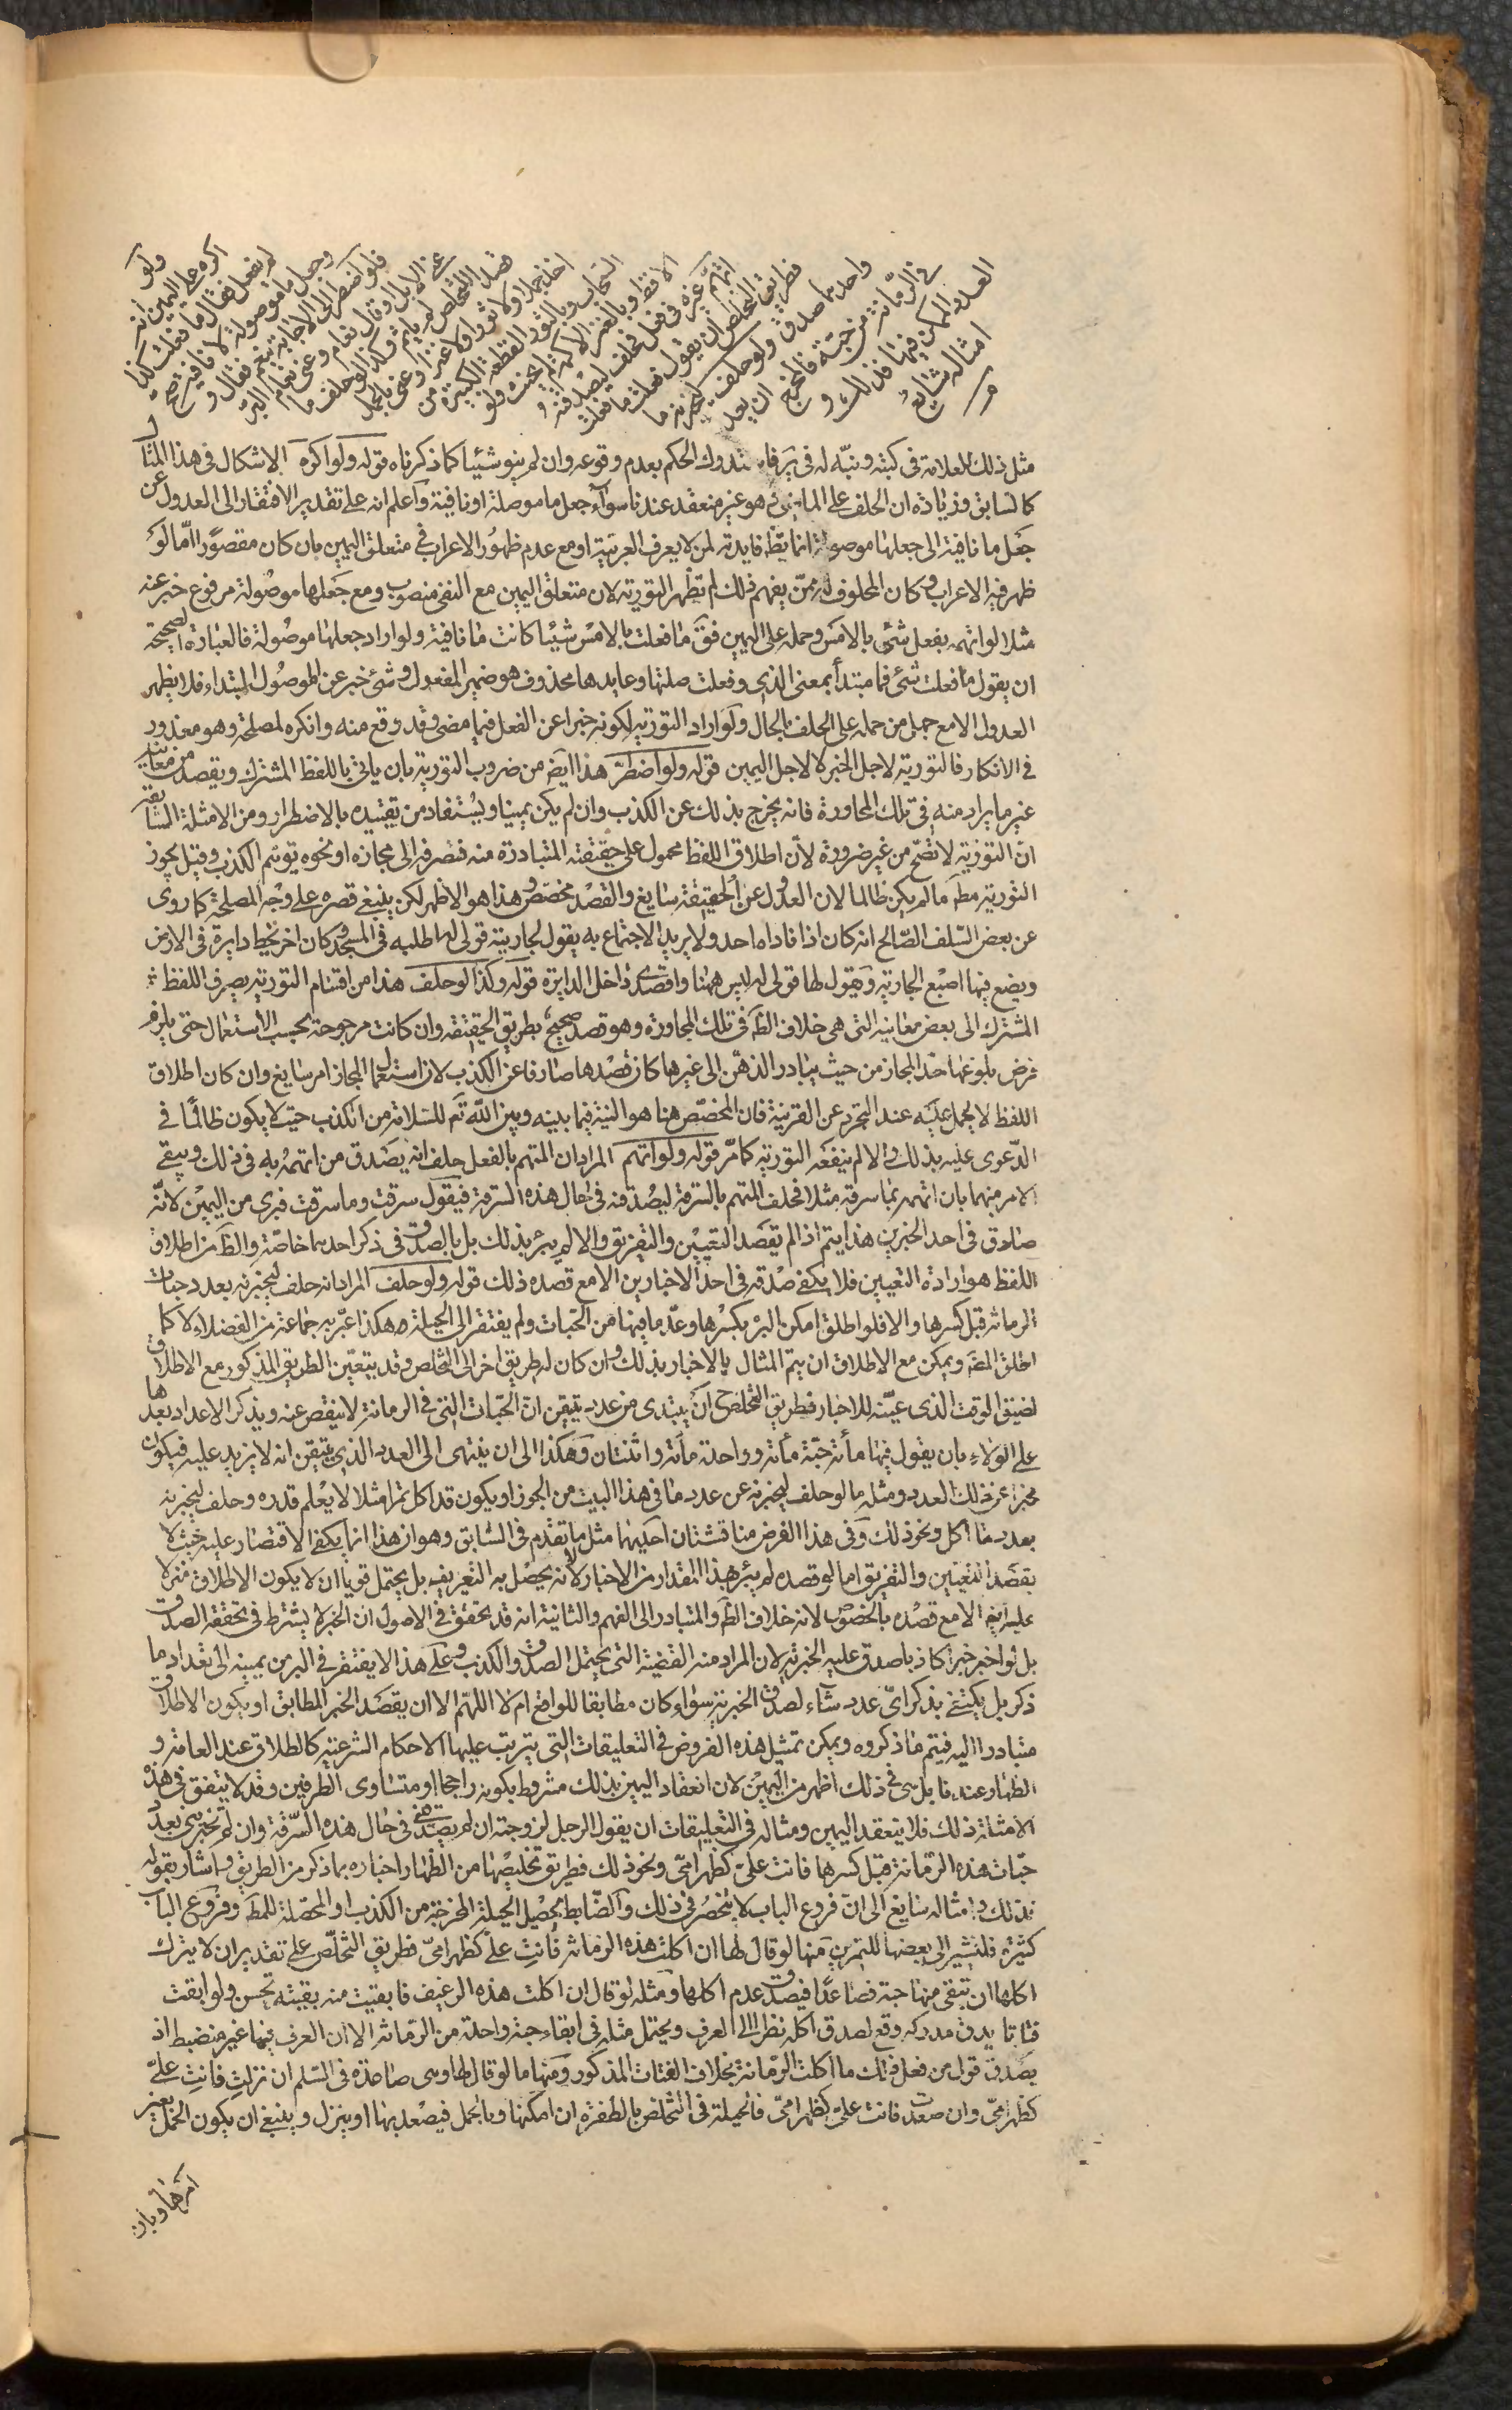 ولو
اكره على اليمين انه
لم يفعل فقال ما فعلت كذا
وجعل ما موصولة لا نافية صح و
فلو اضطر الى الاجابة بنعم فقال و
عنى الابل او قال نعام وعنى نعام البر
قصد التخلص لم يأثم وكذا لو حلف ما
اخذ جملا ولا ثورا ولا عنزا وعنى بالجمل
السحاب وبالثور القطعة الكبيرة من
الاقط وبالعنز الاكمة لم يحنث ولو
اتهم غيره في فعل فحلف ليصدقنه
فطريق التخلص ان يقول فعلت ما فعلت
واحدهما صدق ولو حلف ليخبرنه ما
في الرمانة من حبة فالمخرج ان يعد
العدد الممكن فيها فذلك و
امثاله سايغ
مثل ذلك العلامة في كتبه ونبه له في الحكم بعدم وقوعه وان لم ينو شيئا كما ذكرناه قوله ولو اكره الاشكال في هذا المثال
كالسابق وزيادة ان الحلف على الماضي هو غير منعقد عندنا سواء جعل ما موصلة او نافية واعلم انه على تقدير الافتقار الى العدول عن
جعل ما نافية الى جعلها موصولة انما يظ فايدته لمن لا يعرف العربية او مع عدم ظهور الاعراب في متعلق اليمين بان كان مقصورا اما لو
ظهر فيه الاعراب وكان المحلوف له ممن يفهم ذلك لم تظهر التورية لان متعلق اليمين مع النفي منصوب ومع جعلها موصولة مرفوع خبر عنه
مثلا لو اتهمه بفعل شئ بالامس وحمله على اليمين فق ما فعلت بالامس شيئا كانت ما نافية ولو اراد جعلها موصولة فالعبارة الصحيحة
ان يقول ما فعلت شئ فما مبتدأ بمعنى الذي وفعلت صلتها وعايدها محذوف هو ضمير المفعول وشئ خبر عن الموصول المبتداء فلا يظهر
العدول الا مع جهل من حمله على الحلف بالحال ولو اراد التورية لكونه خبرا عن الفعل فيما مضى وقد وقع منه وانكره لمصلحة وهو معذور
في الانكار فالتورية لاجل الخبر لا لاجل اليمين قوله ولو اضطر هذا ايض من ضروب التورية بان ياتى باللفظ المشترك ويقصد من معانيه
غير ما يراد منه في تلك المحاورة فانه يخرج بذلك عن الكذب وان لم يكن يمينا ويستفاد من تقييده بالاضطرار ومن الامثلة السابقة
ان التورية لا تصح من غير ضرورة لان اطلاق اللفظ محمول على حقيقته المتبادرة منه فتصرفه الى مجازه او نحوه توهم الكذب وقيل يجوز
التورية مط ما لم يكن ظالما لان العدول عن الحقيقة سايغ والقصد مخصص وهذا هو الاظهر لكن ينبغي قصره على وجه المصلحة كما روى
عن بعض السلف الصالح انه كان اذا ناداه احد ولا يريد الاجتماع به يقول لجاريته قولي له اطلبه في المسجد وكان اخر يخط دايرة في الارض
ويضع فيها اصبع الجارية ويقول لها قولي له ليس ههنا واقصدي داخل الدايرة قوله وكذا لو حلف هذا من اقسام التورية بصرف اللفظ
المشترك الى بعض معانيه التي هي خلاف الظ في تلك المحاورة وهو قصد صحيح بطريق الحقيقة وان كانت مرجوحة بحسب الاستعمال حتى يلزم
فرض بلوغها حد المجاز من حيث يتبادر الذهن الى غيرها كان قصدها صارفا عن الكذب لان استعمال المجاز امر سايغ وان كان اطلاق
اللفظ لا يحمل عليه عند التجرد عن القرينة فان المخصص هنا هو النية فيما بينه وبين الله تع للسلامة من الكذب حيث لا يكون ظالما في
الدعوى عليه بذلك والا لم ينفعه التورية كما مر قوله ولو اتهم المراد ان المتهم بالفعل حلف انه يصدق من اتهمه به في ذلك ويبقى
الامر مبهما بان اتهمه بالسرقة مثلا فحلف المتهم بالسرقة ليصدقنه في حال هذه السرقة فيقول سرقت وما سرقت فبرئ من اليمين لانه
صادق في احد الخبرين هذا يتم اذا لم يقصد التعيين والتفريق والا لم يبرء بذلك بل بالصدق في ذكر احدهما خاصة والظ من اطلاق
اللفظ هو ارادة التعيين فلا يكفى صدقه في احد الاخبارين الا مع قصده ذلك قوله ولو حلف المراد انه حلف ليخبرنه بعدد حبات
الرمانة قبل كسرها والا فلو اطلق امكن البر بكسرها وعد ما فيها من الحبات ولم يفتقر الى الحيلة وهكذا عبر به جماعة من الفضلاء لا كما
اطلق المص ويمكن مع الاطلاق ان يتم المثال بالاخبار بذلك وان كان له طريق اخر الى التخلص وقد يتعين الطريق المذكور مع الاطلاق
لضيق الوقت الذي عينه للاخبار فطريق التخلص ح ان يبتدى من عدد يتيقن ان الحبات التي في الرمانة لا ينقص عنه ويذكر الاعداد بعدها
على الولاء بان يقول فيها مأئة حبة مأئة وواحدة مأئة واثنتان وهكذا الى ان ينتهى الى العدد الذي يتيقن انه لا يزيد عليه فيكون
مخبرا عن ذلك العدد ومثله ما لو حلف ليخبرنه عن عدد ما في هذا البيت من الجوز او يكون قد اكل تمرا مثلا لا يعلم قدره وحلف ليخبرنه
بعدد ما اكل ونحو ذلك وفي هذا الفرض مناقشتان احديهما مثل ما تقدم في السابق وهو ان هذا انما يكفي الاقتصار عليه حيث لا
يقصد التعيين والتفريق اما لو قصده لم يبرء بهذا المقدار من الاخبار لانه لا يحصل به التعريف بل يحتمل قويا ان لا يكون الاطلاق منزلا
عليه ايض الا مع قصده بالخصوص لانه خلاف الظ والمتبادر الى الفهم والثانية انه قد تحقق في الاصول ان الخبر لا يشترط في تحققه الصدق
بل لو اخبر خبرا كاذبا صدق عليه الخبرية لان المراد منه القضية التي يحتمل الصدق والكذب وعلى هذا لا يفتقر في البر من يمينه الى تعداد ما
ذكر بل يكتفى بذكر اي عدد شاء لصدق الخبرية سواء كان مطابقا للواقع ام لا اللهم الا ان يقصد الخبر المطابق او يكون الاطلاق
متبادرا اليه فيتم ما ذكروه ويمكن تمثيل هذه الفروض في التعليقات التي يترتب عليها الاحكام الشرعية كالطلاق عند العامة و
الظهار عندنا بل هي في ذلك اظهر من اليمين لان انعقاد اليمين بذلك مشروط بكونه راجحا او متساوى الطرفين وقد لا يتفق في هذه
الامثلة ذلك فلا ينعقد اليمين ومثاله في التعليقات ان يقول الرجل لزوجته ان لم تصدقنى في حال هذه السرقة وان لم تخبرينى بعدد
حبات هذه الرمانة قبل كسرها فانت على كظهر امى ونحو ذلك فطريق تخليصها من الظهار اخباره بما ذكر من الطريق واشار بقوله
فذلك وامثاله سايغ الى ان فروع الباب لا ينحصر في ذلك والضابط تحصيل الحيلة المخرجة من الكذب او المحصلة للمط وفروع الباب
كثيرة فلنشير الى بعضها للتمرين منها لو قال لها ان اكلت هذه الرمانة فانت على كظهر امى فطريق التخلص على تقدير ان لا يترك
اكلها ان تبقى منها حبة فصاعدا فيصدق عدم اكلها ومثله لو قال ان اكلت هذه الرغيف فابقيت منه بقيته تحسن ولو ابقت
فتاتا يدق مدركه وقع لصدق اكله نظرا الى العرف ويحتمل مثله في ابقاء حبة واحدة من الرمانة الا ان العرف فيها غير منضبط اذ
يصدق قول من فعل ذلك ما اكلت الرمانة بخلاف الفتات المذكور ومنها ما لو قال لها وهى صاعدة في السلم ان نزلت فانت على
كظهر امى وان صعدت فانت على كظهر امى فالحيلة في التخلص بالطفرة ان امكنها وبالحمل فيصعد بها او ينزل وينبغى ان يكون الحمل بغير
امرها وبان